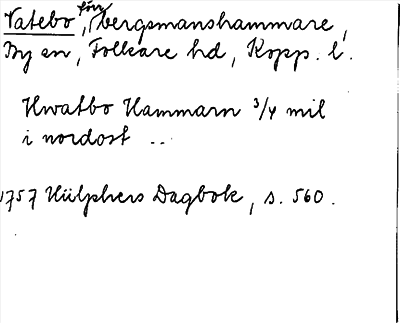 Vatebo, förr bergsmanshammare,
By sn, Folkare hd, Kopp. l.
Hwatbo Hammarn 3/4 mil
i nordost ..
1757 Hülphers Dagbok, s. 560.